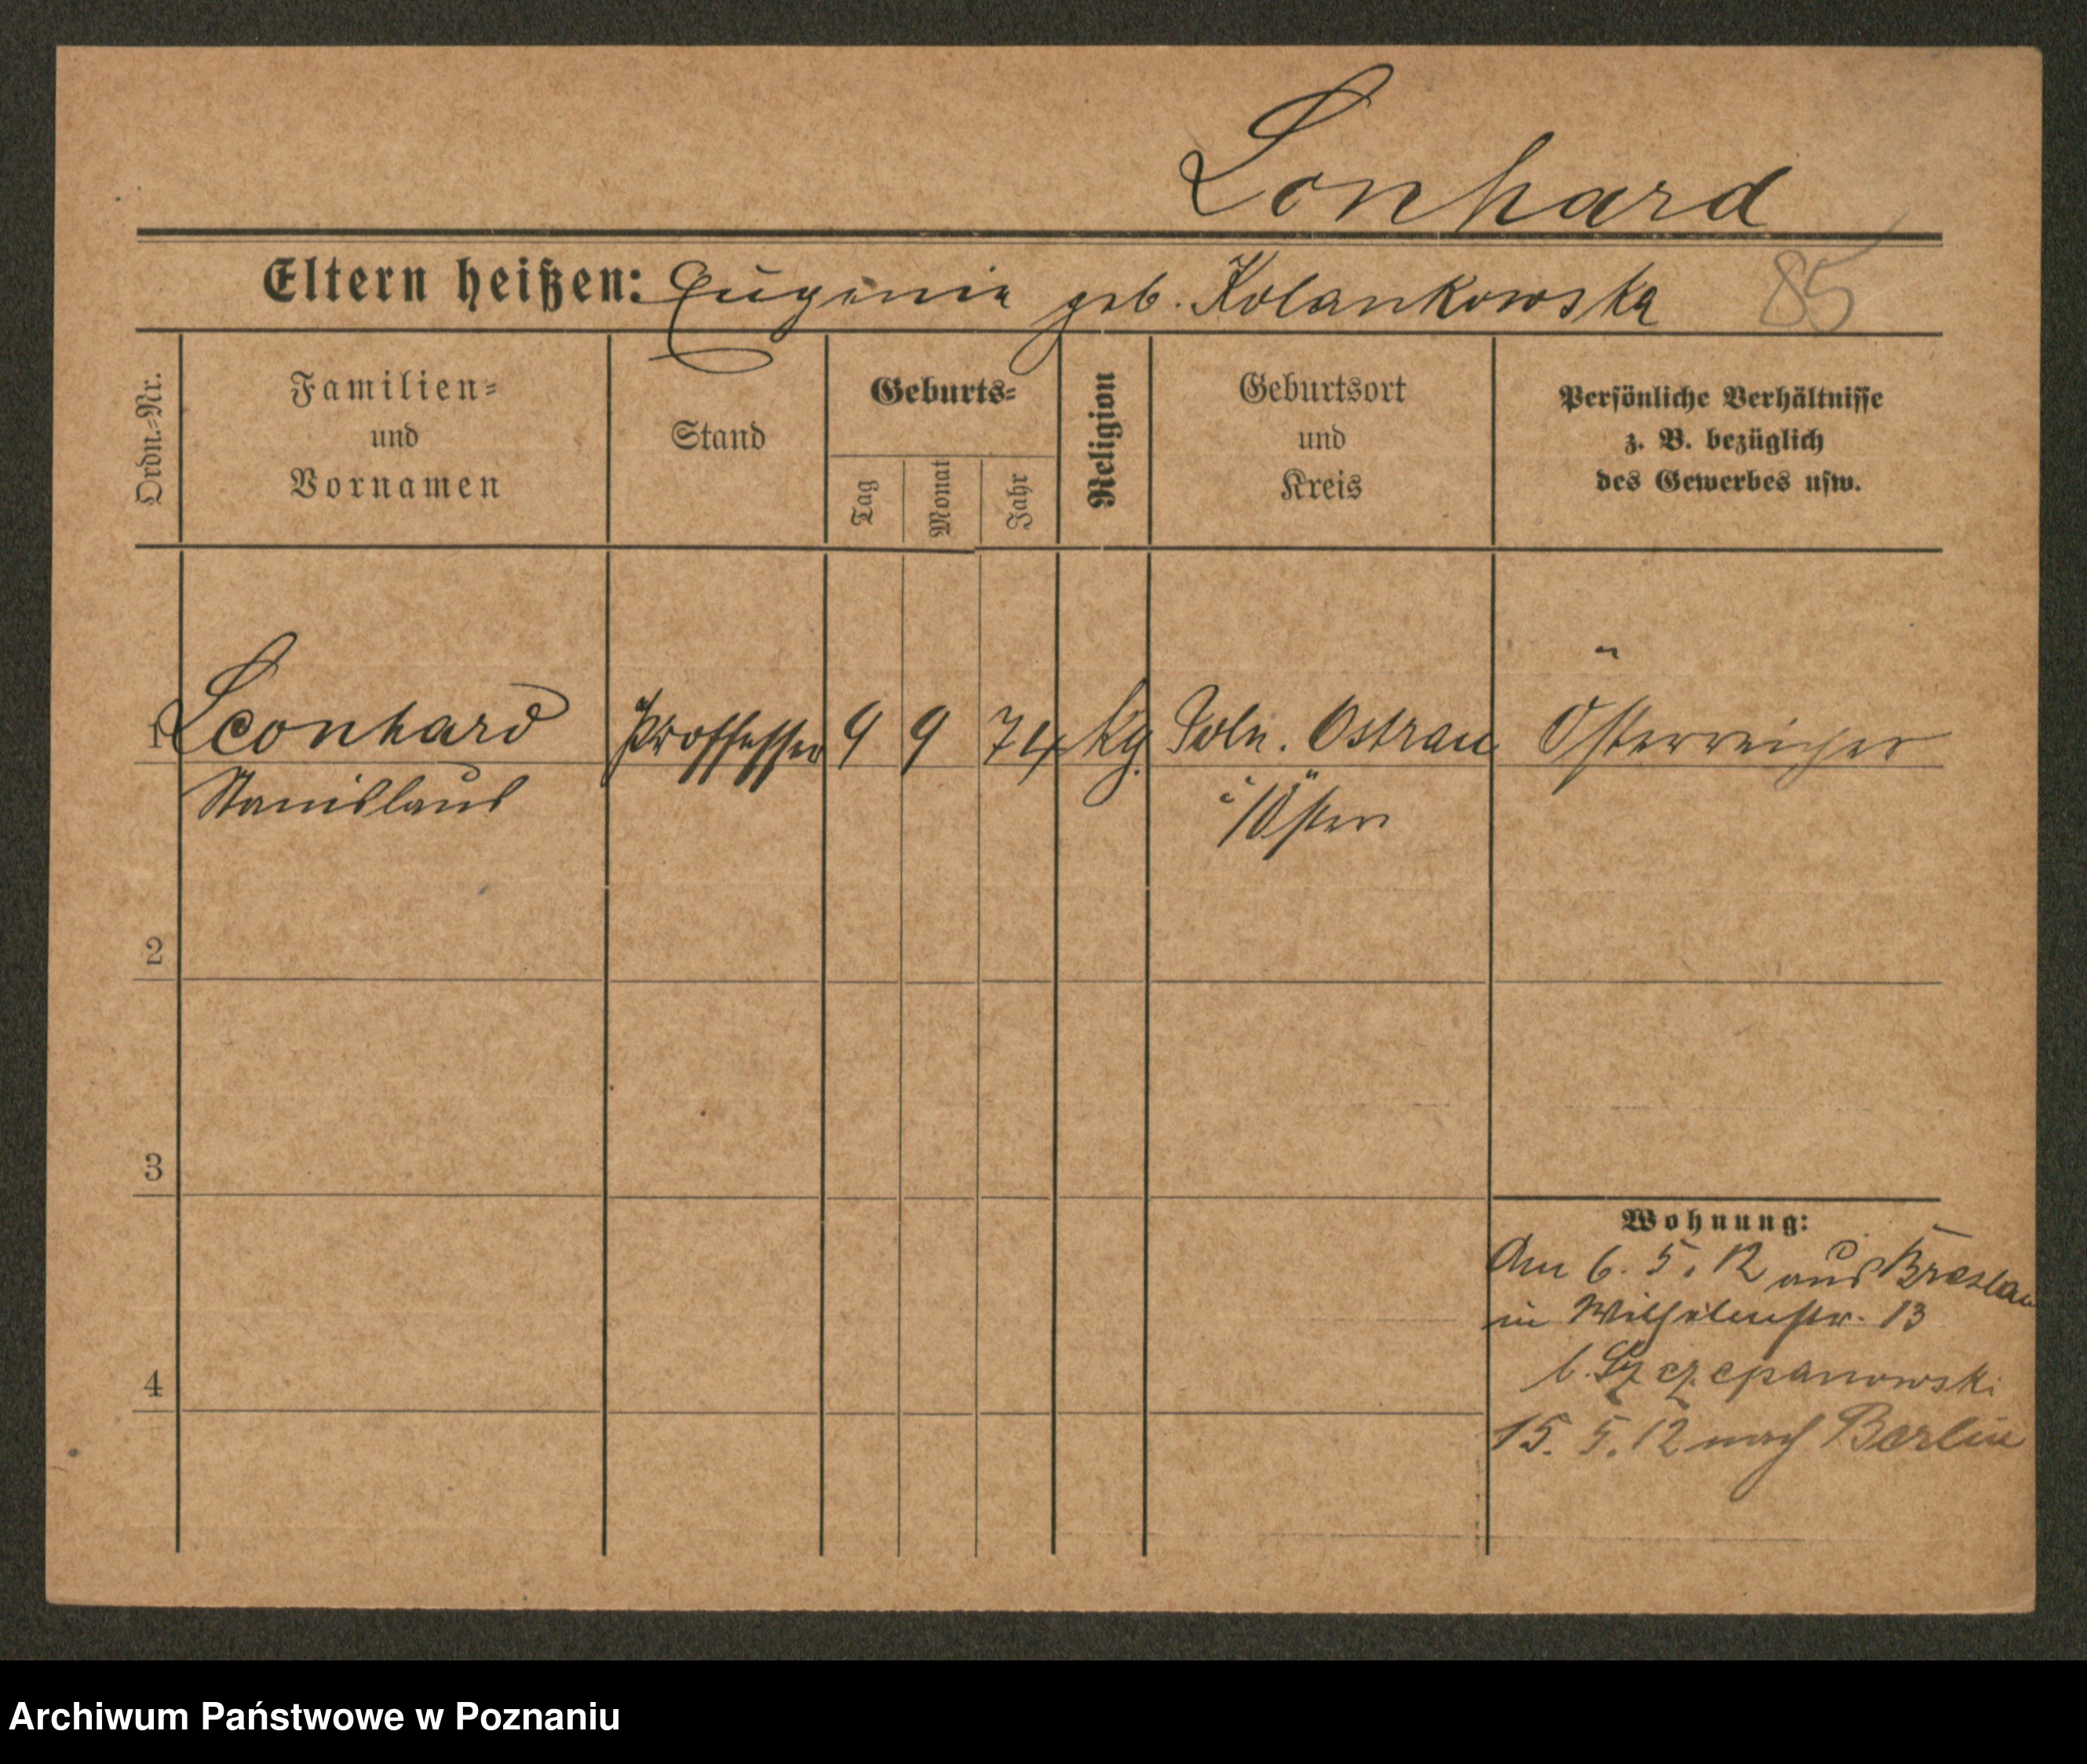 Lonhard
Eltern heißen: Eugenie geb. Kolankowska 85
Ordn.-Nr.
Familien-
und
Vornamen
Stand
Geburts-
Tag
Monat
Jahr
Religion
Geburtsort
und
Kreis
Persönliche Verhältnisse
z. B. bezüglich
des Gewerbes usw.
1 Leonhard Proffesser 9 9 74 kg. Poln. Ostrau Österreicher
Stanislaus i/Österr
2
3
4
Wohnung:
Am 6. 5. 12 aus Breslau
in Wilhelmstr. 13
b. Szczepanowski
15. 5. 12 nach Berlin
Archiwum Państwowe w Poznaniu